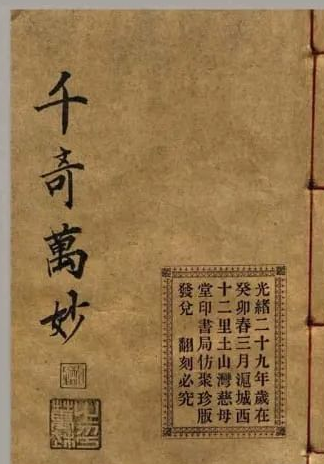 千奇萬妙
光緒二十九年歲在
癸卯春三月滬城西
十二里土山灣慈母
堂印書局仿聚珍版
發兌　翻刻必究